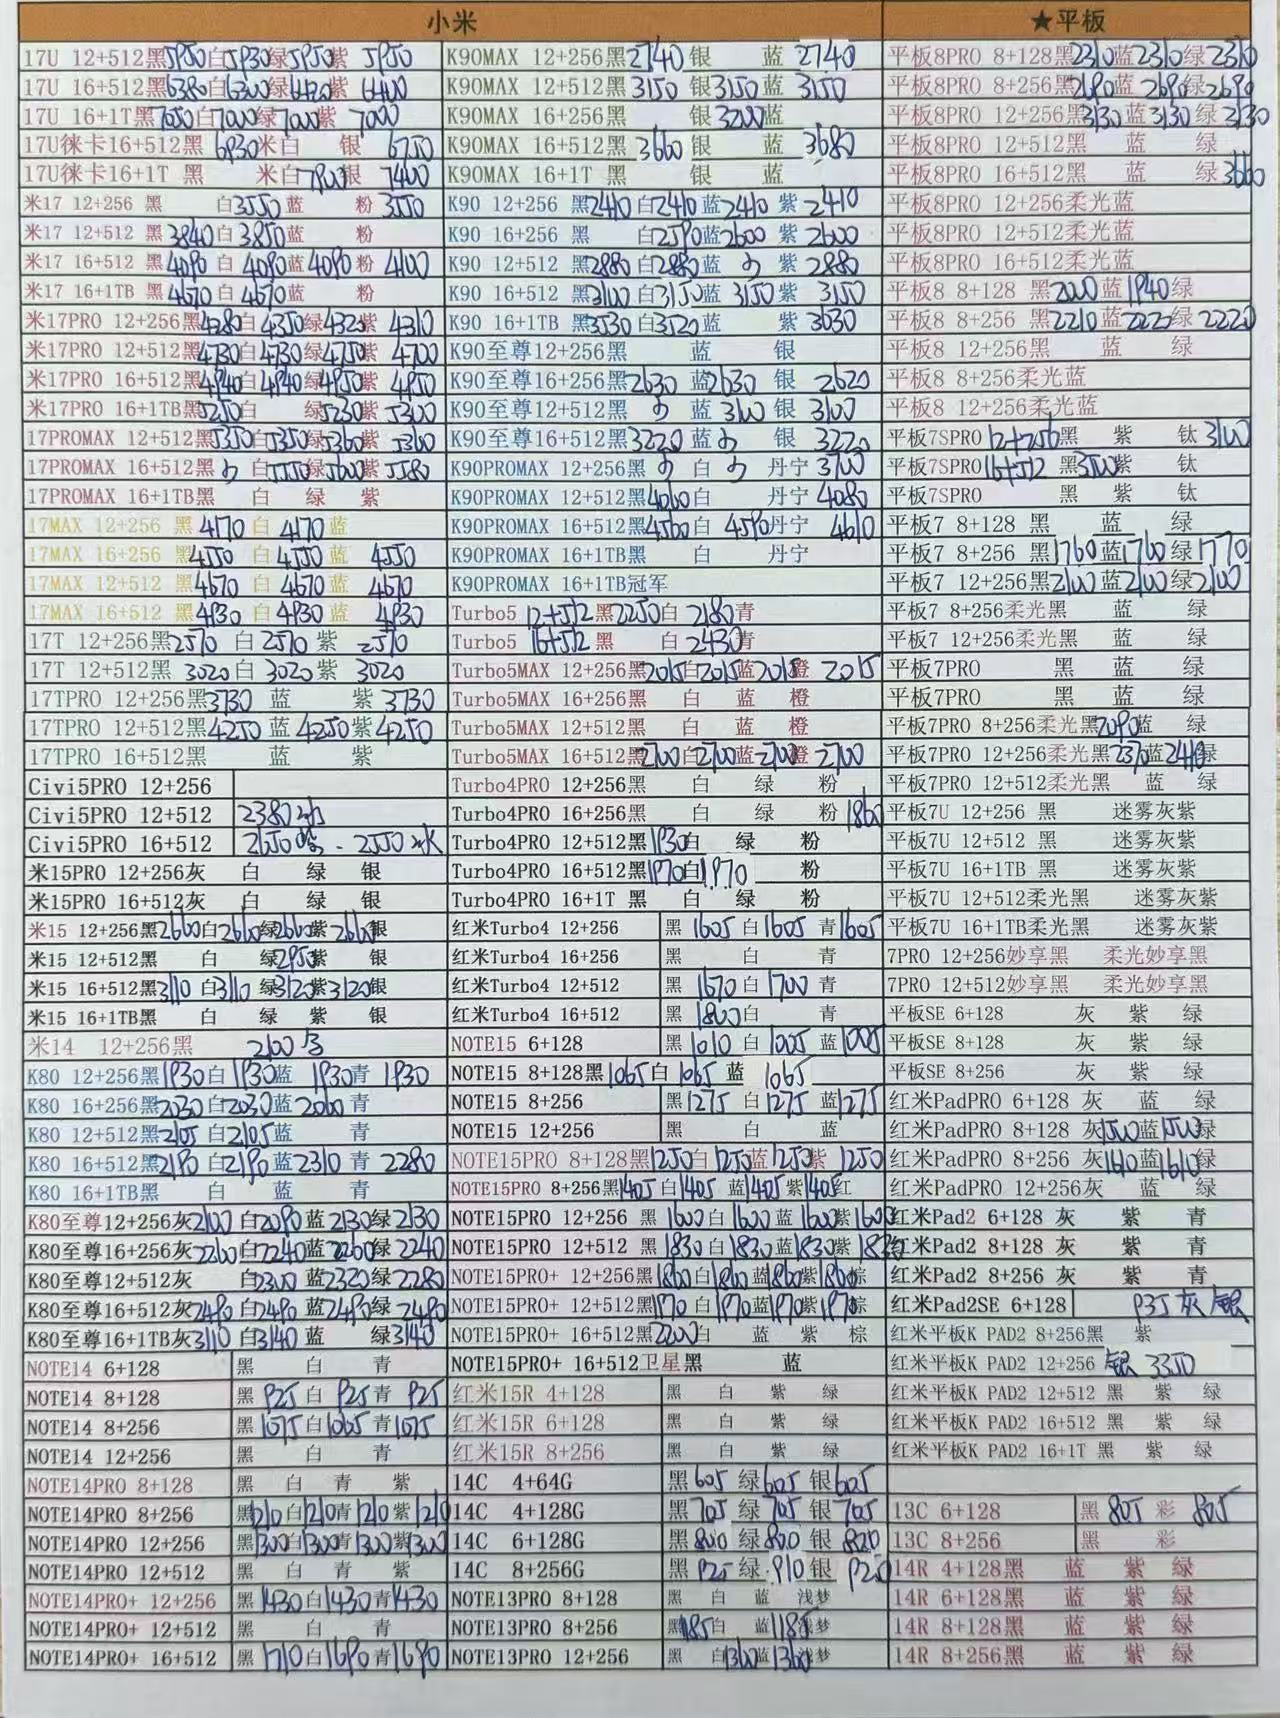 小米
17U 12+512黑5950白5930绿5950紫 5950
17U 16+512黑6380白6300绿6420紫 6400
17U 16+1T黑7050白7000绿7000紫 7000
17U徕卡16+512黑 6930米白 银 6750
17U徕卡16+1T 黑 米白7900银 7400
米17 12+256 黑 白3550蓝 粉 3550
米17 12+512 黑 3840白 3850蓝 粉
米17 16+512 黑4090 白 4090蓝4090粉 4100
米17 16+1TB 黑4670 白 4670蓝 粉
米17PRO 12+256黑4280白4350绿4320紫 4310
米17PRO 12+512黑4730白4730绿4750紫 4700
米17PRO 16+512黑4940白4940绿4950紫 4950
米17PRO 16+1TB黑5250白 绿5230紫 5300
17PROMAX 12+512黑5350白5350绿5360紫 5360
17PROMAX 16+512黑 白5550绿5600紫 5580
17PROMAX 16+1TB黑 白 绿 紫
17MAX 12+256 黑 4170白 4170蓝
17MAX 16+256 黑4550 白 4550蓝 4550
17MAX 12+512 黑4670 白 4670蓝 4670
17MAX 16+512 黑4930 白 4930蓝 4930
17T 12+256黑2570 白 2570 紫 2570
17T 12+512黑 3020白 3020紫 3020
17TPRO 12+256黑3730 蓝 紫 3730
17TPRO 12+512黑4250 蓝 4250紫4250
17TPRO 16+512黑 蓝 紫
Civi5PRO 12+256
Civi5PRO 12+512 2380冰
Civi5PRO 16+512 2550冰
米15PRO 12+256灰 白 绿 银
米15PRO 16+512灰 白 绿 银
米15 12+256黑2660白2660绿2660紫 2660银
米15 12+512黑 白 绿2950紫 银
米15 16+512黑3110 白3110 绿3120紫3120银
米15 16+1TB黑 白 绿 紫 银
米14 12+256黑 2100
K80 12+256黑1930白 1930蓝 1930青 1930
K80 16+256黑2030白2030蓝 2060青
K80 12+512黑2105 白2105蓝 青
K80 16+512黑2190 白2190 蓝2310 青 2280
K80 16+1TB黑 白 蓝 青
K80至尊12+256灰2100 白2090 蓝2130绿2130
K80至尊16+256灰2260白2240蓝2260绿2240
K80至尊12+512灰 白2300 蓝2320绿2280
K80至尊16+512灰2490 白2490 蓝2490绿2490
K80至尊16+1TB灰3110 白3140 蓝 绿3140
NOTE14 6+128 黑 白 青
NOTE14 8+128 黑 925 白 925青 925
NOTE14 8+256 黑1075白1065青1075
NOTE14 12+256 黑 白 青
NOTE14PRO 8+128 黑 白 青 紫
NOTE14PRO 8+256 黑1210白1210青1210紫1210
NOTE14PRO 12+256 黑1300白1300青1300紫1300
NOTE14PRO 12+512 黑 白 青 紫
NOTE14PRO+ 12+256 黑1430白1430青1430
NOTE14PRO+ 12+512 黑 白 青
NOTE14PRO+ 16+512 黑 1710白1690青1690
K90MAX 12+256黑2740 银 蓝 2740
K90MAX 12+512黑3150 银3150蓝 3150
K90MAX 16+256黑 银3200蓝
K90MAX 16+512黑 3660 银 蓝 3680
K90MAX 16+1T 黑 银 蓝
K90 12+256 黑2410 白2410蓝2410 紫 2410
K90 16+256 黑 白2590蓝2600 紫 2600
K90 12+512 黑2880 白2880蓝 紫 2880
K90 16+512 黑3100 白3150蓝 3150紫 3150
K90 16+1TB 黑3530 白3520蓝 紫 3030
K90至尊12+256黑 蓝 银
K90至尊16+256黑2630 蓝2630 银 2620
K90至尊12+512黑 蓝 3100 银 3100
K90至尊16+512黑3220 蓝 银 3220
K90PROMAX 12+256黑 白 丹宁 3700
K90PROMAX 12+512黑4060白 丹宁 4080
K90PROMAX 16+512黑4560白 4590丹宁 4610
K90PROMAX 16+1TB黑 白 丹宁
K90PROMAX 16+1TB冠军
Turbo5 12+512黑2250白 2180青
Turbo5 16+512 黑 白 2430青
Turbo5MAX 12+256黑2015白2015蓝2015橙 2015
Turbo5MAX 16+256黑 白 蓝 橙
Turbo5MAX 12+512黑 白 蓝 橙
Turbo5MAX 16+512黑2700白2700蓝2700橙 2700
Turbo4PRO 12+256黑 白 绿 粉
Turbo4PRO 16+256黑 白 绿 粉1860
Turbo4PRO 12+512黑1930白 绿 粉
Turbo4PRO 16+512黑1970白1970 粉
Turbo4PRO 16+1T 黑 白 绿 粉
红米Turbo4 12+256 黑 1605 白1605 青1605
红米Turbo4 16+256 黑 白 青
红米Turbo4 12+512 黑 1670 白 1700 青
红米Turbo4 16+512 黑 1800白 青
NOTE15 6+128 黑1010 白1005 蓝1005
NOTE15 8+128黑1065白 1065 蓝 1065
NOTE15 8+256 黑1275 白1275 蓝1275
NOTE15 12+256 黑 白 蓝
NOTE15PRO 8+128黑1250白 1250蓝1250紫 1250
NOTE15PRO 8+256黑1405白1405 蓝1405紫1405红
NOTE15PRO 12+256 黑 1600白 1600蓝 1600紫1600
NOTE15PRO 12+512 黑 1830白1830蓝1830紫 1830
NOTE15PRO+ 12+256黑1860白1860蓝1860紫1860棕
NOTE15PRO+ 12+512黑1970 白1970蓝1970紫1970棕
NOTE15PRO+ 16+512黑2200白 蓝 紫 棕
NOTE15PRO+ 16+512卫星黑 蓝
红米15R 4+128 黑 白 紫 绿
红米15R 6+128 黑 白 紫 绿
红米15R 8+256 黑 白 紫 绿
14C 4+64G 黑605 绿605 银605
14C 4+128G 黑705 绿705 银705
14C 6+128G 黑800 绿800 银820
14C 8+256G 黑925 绿910 银920
NOTE13PRO 8+128 黑 白 蓝 浅梦
NOTE13PRO 8+256 黑1185白 蓝1185浅梦
NOTE13PRO 12+256 黑 白1360蓝1360浅梦
★平板
平板8PRO 8+128黑2310蓝2310绿2310
平板8PRO 8+256黑2690蓝 2690绿2690
平板8PRO 12+256黑3130蓝3130绿3130
平板8PRO 12+512黑 蓝 绿
平板8PRO 16+512黑 蓝 绿3660
平板8PRO 12+256柔光蓝
平板8PRO 12+512柔光蓝
平板8PRO 16+512柔光蓝
平板8 8+128 黑2000蓝1940绿
平板8 8+256 黑2210蓝2220绿 2220
平板8 12+256黑 蓝 绿
平板8 8+256柔光蓝
平板8 12+256柔光蓝
平板7SPRO 12+256黑 紫 钛 3100
平板7SPRO 16+512 黑3500紫 钛
平板7SPRO 黑 紫 钛
平板7 8+128 黑 蓝 绿
平板7 8+256 黑1760蓝1760绿1770
平板7 12+256黑2100蓝2100绿2100
平板7 8+256柔光黑 蓝 绿
平板7 12+256柔光黑 蓝 绿
平板7PRO 黑 蓝 绿
平板7PRO 黑 蓝 绿
平板7PRO 8+256柔光黑2090蓝 绿
平板7PRO 12+256柔光黑2370蓝2410绿
平板7PRO 12+512柔光黑 蓝 绿
平板7U 12+256 黑 迷雾灰紫
平板7U 12+512 黑 迷雾灰紫
平板7U 16+1TB 黑 迷雾灰紫
平板7U 12+512柔光黑 迷雾灰紫
平板7U 16+1TB柔光黑 迷雾灰紫
7PRO 12+256妙享黑 柔光妙享黑
7PRO 12+512妙享黑 柔光妙享黑
平板SE 6+128 灰 紫 绿
平板SE 8+128 灰 紫 绿
平板SE 8+256 灰 紫 绿
红米PadPRO 6+128 灰 蓝 绿
红米PadPRO 8+128 灰1500蓝1500绿
红米PadPRO 8+256 灰1610蓝1610绿
红米PadPRO 12+256灰 蓝 绿
红米Pad2 6+128 灰 紫 青
红米Pad2 8+128 灰 紫 青
红米Pad2 8+256 灰 紫 青
红米Pad2SE 6+128 935灰 银
红米平板K PAD2 8+256黑 紫
红米平板K PAD2 12+256 银 3350
红米平板K PAD2 12+512 黑 紫 绿
红米平板K PAD2 16+512 黑 紫 绿
红米平板K PAD2 16+1T 黑 紫 绿
13C 6+128 黑 805 彩 805
13C 8+256 黑 彩
14R 4+128黑 蓝 紫 绿
14R 6+128黑 蓝 紫 绿
14R 8+128黑 蓝 紫 绿
14R 8+256黑 蓝 紫 绿